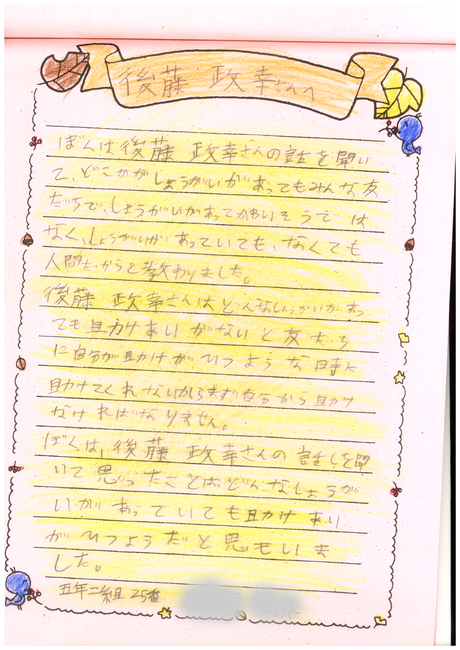 後藤 政幸さんへ
ぼくは後藤 政幸さんの話を聞い
て、どこかがしょうがいがあってもみんな友
だちで、しょうがいがあってかわいそうでは
なく、しょうがいがあっていても、なくても
人間だからと教わりました。
後藤 政幸さんはどんなしょうがいがあっ
ても助けあいがないと友だち
に自分が助けがひつような時に
助けてくれないからまず自分から助け
なければなりません。
ぼくは、後藤 政幸さんの話しを聞
いて思ったことはどんなしょうが
いがあっていても助けあい
がひつようだと思もいま
した。
五年二組 25番